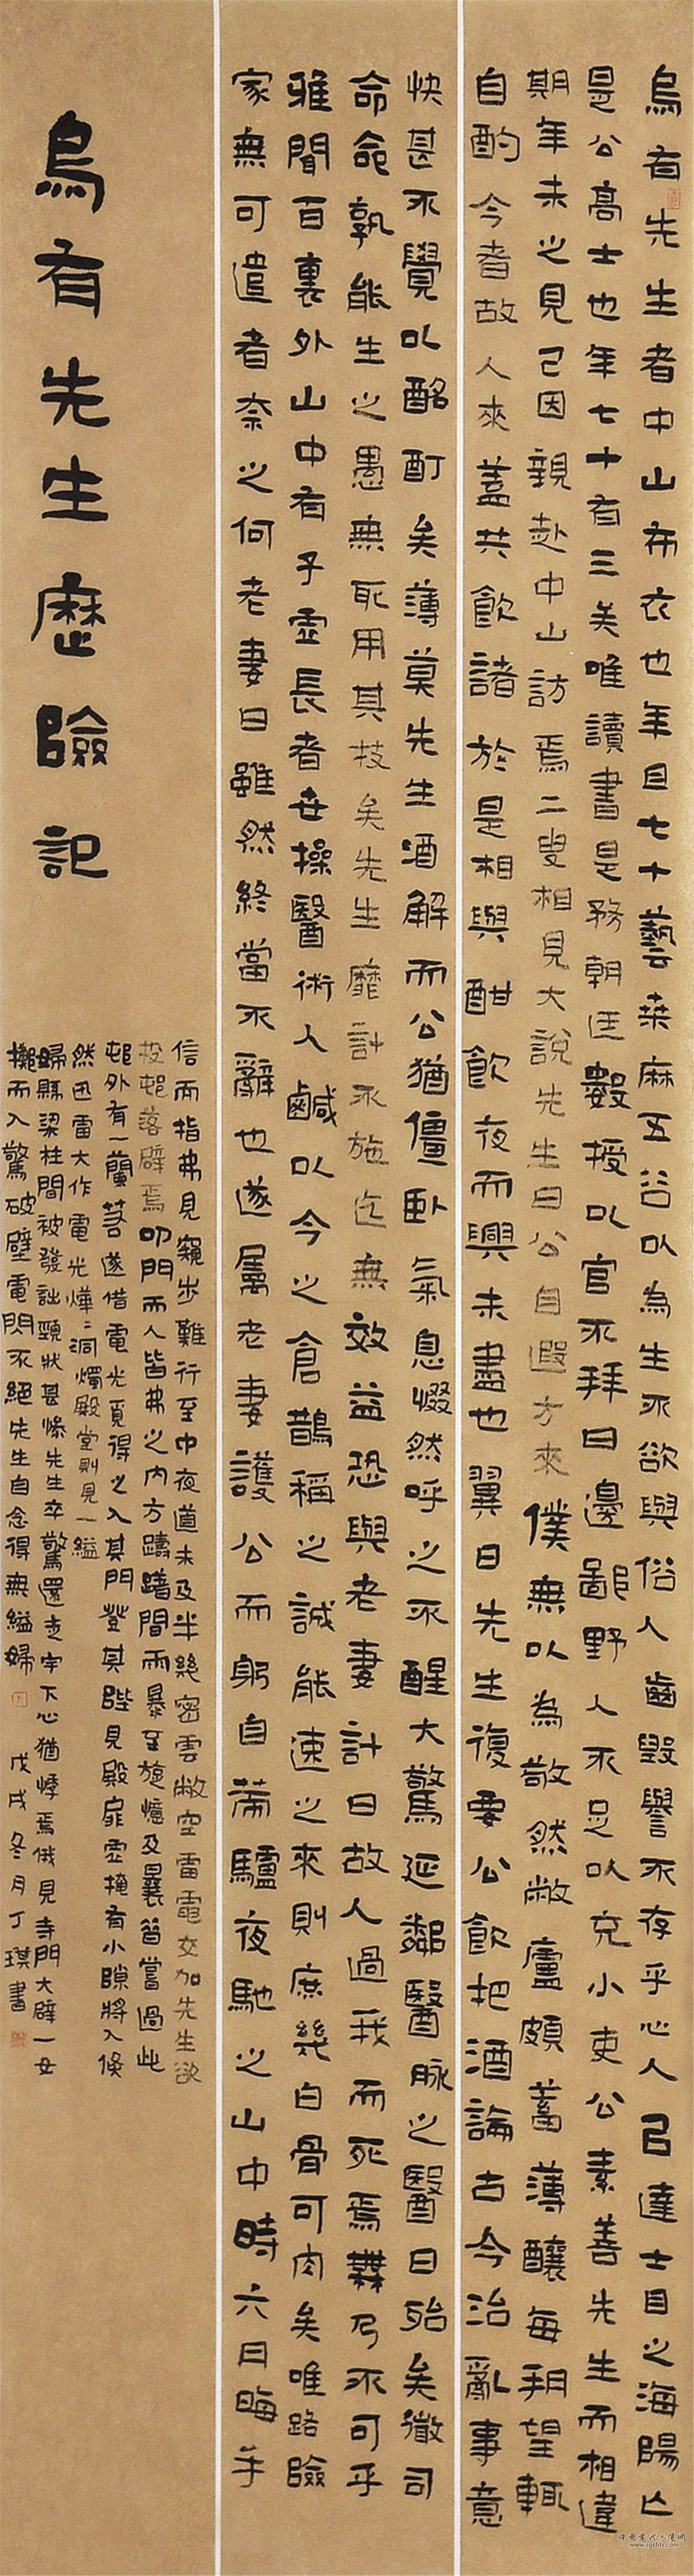 烏有先生者中山布衣也年且七十藝桑麻五谷以為生不欲與俗人齒毀譽不存乎心人以達士目之海陽亡
是公高士也年七十有三矣唯讀書是務朝廷數授以官不拜曰邊鄙野人不足以充小吏公素善先生而相違
期年未之見已因親赴中山訪焉二叟相見大說先生曰公自遐方來僕無以為敬然敝廬頗蓄薄釀每朔望輒
自酌今者故人來蓋共飲諸於是相與酣飲夜而興未盡也翼日先生復要公飲把酒論古今治亂事意
快甚不覺以酩酊矣薄莫先生酒解而公猶僵臥氣息惙然呼之不醒大驚延鄰醫脈之醫曰殆矣微司
命命孰能生之愚無所用其技矣先生靡計不施迄無效益恐與老妻計曰故人過我而死焉無乃不可乎
雅聞百裏外山中有子虛長者世操醫術人鹹以今之倉鵲稱之誠能速之來則庶幾白骨可肉矣唯路險
家無可遣者奈之何老妻曰雖然終當不辭也遂屬老妻護公而躬自策驢夜馳之山中時六月晦手
烏有先生歷險記
信而指弗見窺步難行至中夜道未及半絕密雲敝空雷電交加先生欲
投邨落辟焉叩門而人皆弗之內方躊躇間雨暴至旋憶及曩昔嘗過此
邨外有一蘭若遂借電光覓得之入其門登其陛見殿扉虛掩有小隙將入倏
然迅雷大作電光燁〻洞燭殿堂則見一縊
婦縣梁柱間被發詘頸狀甚慘先生卒驚還走宇下心猶悸焉俄見寺門大辟一女
擲而入驚破壁電閃不絕先生自念得無縊婦 戊戌冬月丁琪書
www.zgsfds.com